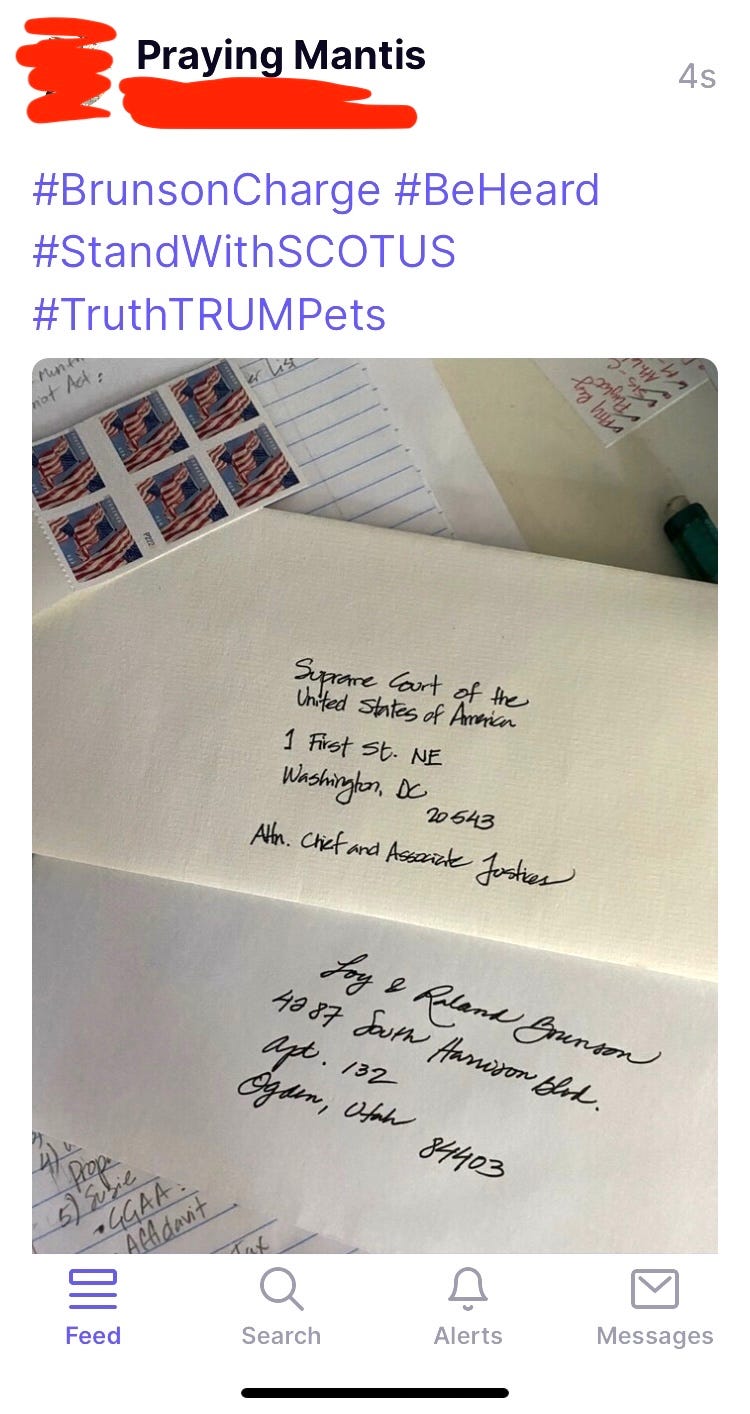 Praying Mantis
4s
#BrunsonCharge #BeHeard
#StandWithSCOTUS
#TruthTRUMPets
not Act:
List
Supreme Court of the
United States of America
1 First St. NE
Washington, DC
20543
Attn. Chief and Associate Justices
Loy & Raland Brunson
4287 South Harrison Blvd.
Apt. 132
Ogden, Utah
84403
4)
Prop
5) Susie
• GGAA:
Affidavit
Tax
Feed
Search
Alerts
Messages